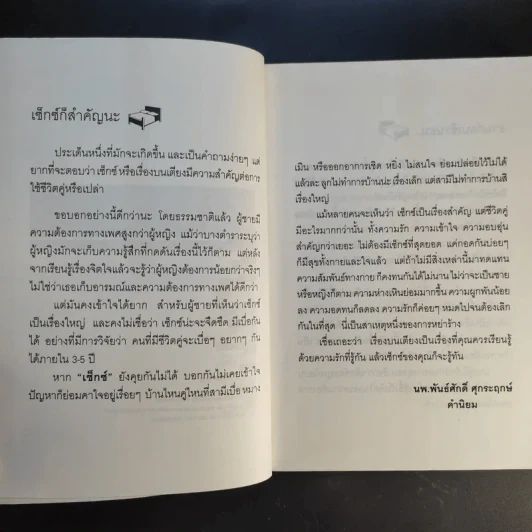 เซ็กซ์ก็สำคัญนะ
ประเด็นหนึ่งที่มักจะเกิดขึ้น และเป็นคำถามง่ายๆ แต่
ยากที่จะตอบว่า เซ็กซ์ หรือเรื่องบนเตียงมีความสำคัญต่อการ
ใช้ชีวิตคู่หรือเปล่า
ขอบอกอย่างนี้ดีกว่านะ โดยธรรมชาติแล้ว ผู้ชายมี
ความต้องการทางเพศสูงกว่าผู้หญิง แม้ว่าบางตำราระบุว่า
ผู้หญิงมักจะเก็บความรู้สึกที่กดดันเรื่องนี้ไว้ก็ตาม แต่หลัง
จากเรียนรู้เรื่องจิตใจแล้วจะรู้ว่าผู้หญิงต้องการน้อยกว่าจริงๆ
ไม่ใช่ว่าเธอเก็บอารมณ์และความต้องการทางเพศได้ดีกว่า
แต่มันคงเข้าใจได้ยาก สำหรับผู้ชายที่เห็นว่าเซ็กซ์
เป็นเรื่องใหญ่ และคงไม่เชื่อว่า เซ็กซ์น่ะจะจืดชืด มีเบื่อกัน
ได้ อย่างที่มีการวิจัยว่า คนที่มีชีวิตคู่จะเบื่อๆ อยากๆ กัน
ได้ภายใน 3-5 ปี
หาก “เซ็กซ์” ยังคุยกันไม่ได้ บอกกันไม่เคยเข้าใจ
ปัญหาก็ย่อมคาใจอยู่เรื่อยๆ บ้านไหนคู่ไหนที่สามีเบื่อ หมาง
เมิน หรือออกอาการเชิด หยิ่ง ไม่สนใจ ย่อมปล่อยไว้ไม่ได้
แล้วละ ลูกไม่ทำการบ้านน่ะ เรื่องเล็ก แต่สามีไม่ทำการบ้านสิ
เรื่องใหญ่
แม้หลายคนจะเห็นว่า เซ็กซ์เป็นเรื่องสำคัญ แต่ชีวิตคู่
มีอะไรมากกว่านั้น ทั้งความรัก ความเข้าใจ ความอบอุ่น
สำคัญกว่าเยอะ ไม่ต้องมีเซ็กซ์ที่สุดยอด แค่กอดกันบ่อยๆ
ก็มีสุขทั้งกายและใจแล้ว แต่ถ้าไม่มีสิ่งเหล่านี้มาทดแทน
ความสัมพันธ์ทางกาย ก็คงทนกันได้ไม่นาน ไม่ว่าจะเป็นชาย
หรือหญิงก็ตาม ความห่างเหินย่อมมากขึ้น ความผูกพันน้อย
ลง ความอดทนก็ลดลง ความรักก็ค่อยๆ หมดไปจนต้องเลิก
กันในที่สุด นี่เป็นสาเหตุหนึ่งของการหย่าร้าง
เชื่อเถอะว่า เรื่องบนเตียงเป็นเรื่องที่คุณควรเรียนรู้
ด้วยความรักที่รู้กัน แล้วเซ็กซ์ของคุณก็จะรู้ทัน
นพ.พันธ์ศักดิ์ ศุกระฤกษ์
คำนิยม